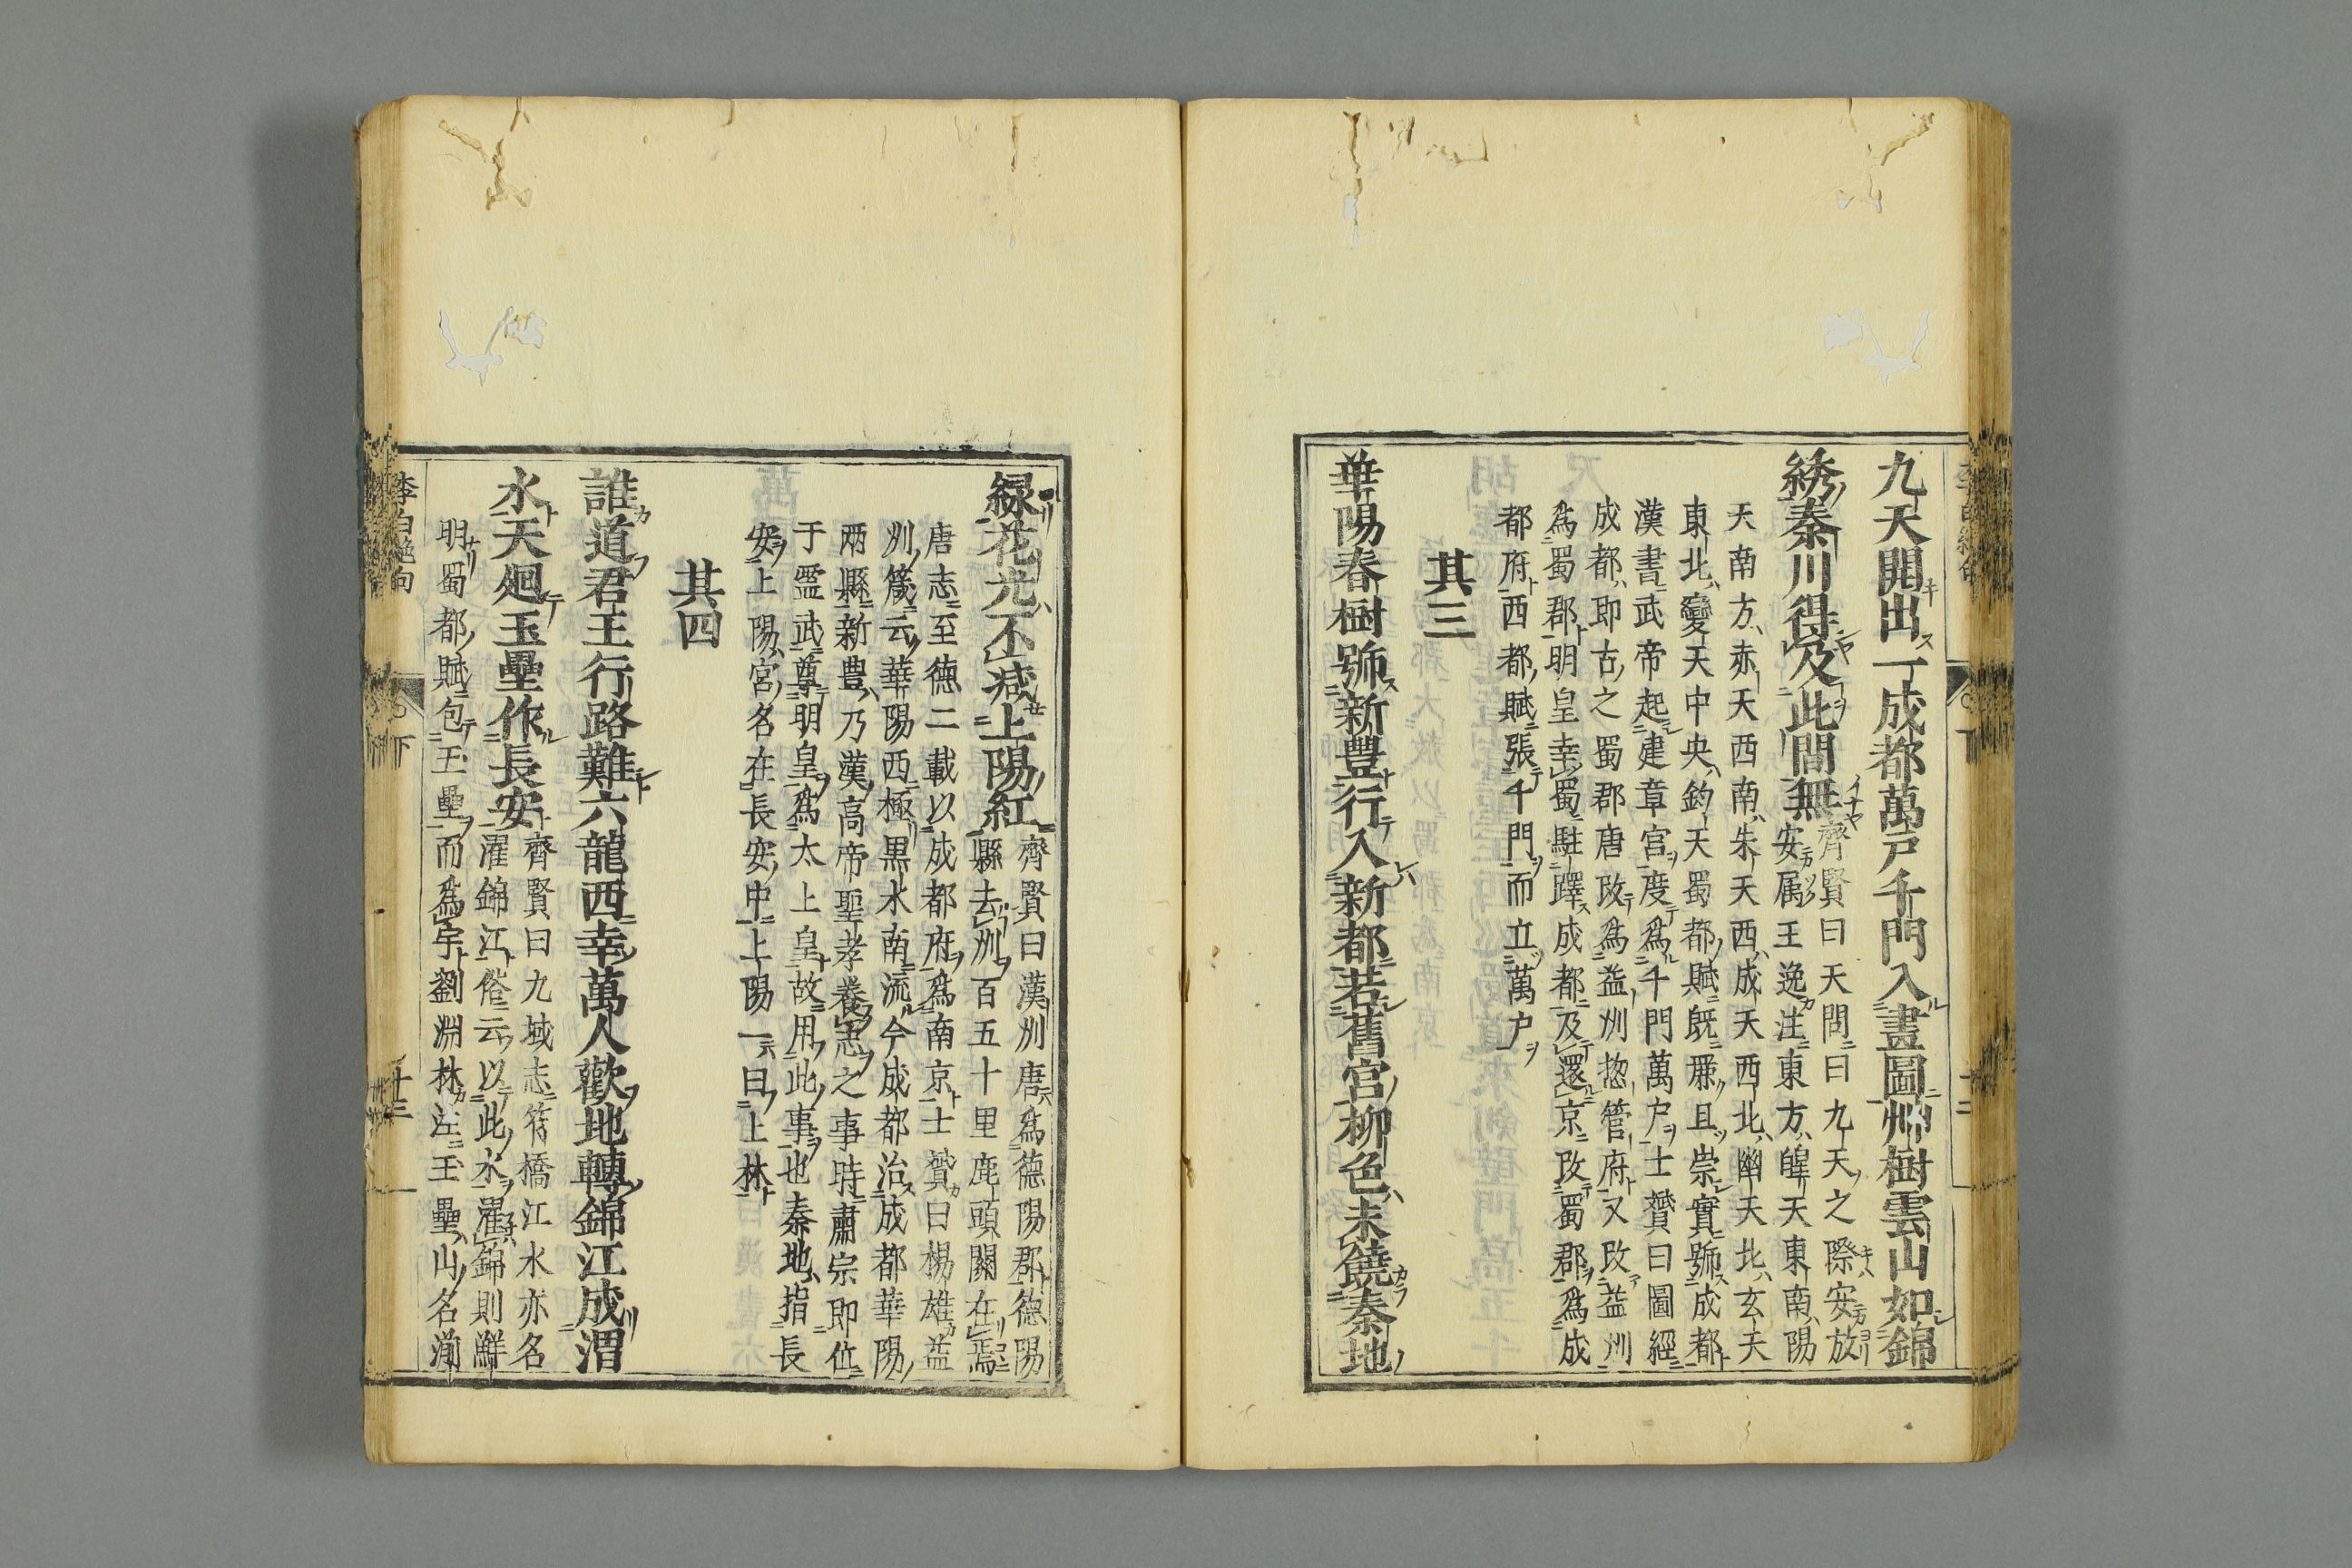 九天開出一成都萬戸千門入畫圖艸樹雲山如錦
綉秦川得及此間無
齊賢曰天問曰九天之際安放
安属王逸注東方皥天東南陽
天南方赤天西南朱天西成天西北幽天北玄天
東北變天中央鈞天蜀都賦既麗且崇實號成都
漢書武帝起建章宮度爲千門萬户士贇曰圖經
成都即古之蜀郡唐改爲益州揔管府又改益州
爲蜀郡明皇幸蜀駐蹕成都及還京改蜀郡爲成
都府西都賦張千門而立萬户
其三
華陽春樹號新豊行入新都若舊宮柳色未饒秦地
緑花光不减上陽紅
齊賢曰漢州唐爲德陽郡德陽
縣去州百五十里鹿頭關在焉
唐志至德二載以成都府爲南京士贇曰楊雄益
州箴云華陽西極黒水南流今成都治成都華陽
兩縣新豊乃漢高帝聖孝養志之事時肅宗即位
于靈武尊明皇爲太上皇故用此事也秦地指長
安上陽宮名在長安中上陽一曰上林
其四
誰道君王行路難六龍西幸萬人歡地轉錦江成渭
水天廻玉壘作長安
齊賢曰九域志笮橋江水亦名
濯錦江俗云以此水濯錦則鮮
明蜀都賦包玉壘而爲宇劉淵林注玉壘山名湔
李白絶句
下
十三